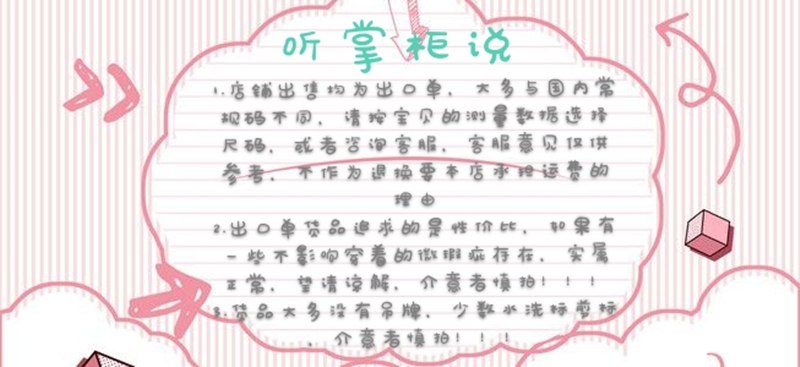 听掌柜说
1.店铺出售均为出口单，大多与国内常
规码不同，请按宝贝的测量数据选择
尺码，或者咨询客服，客服意见仅供
参考，不作为退换要本店承担运费的
理由
2.出口单货品追求的是性价比，如果有
一些不影响穿着的微瑕疵存在，实属
正常，望请谅解，介意者慎拍！！！
3.货品大多没有吊牌，少数水洗标剪标
，介意者慎拍！！！